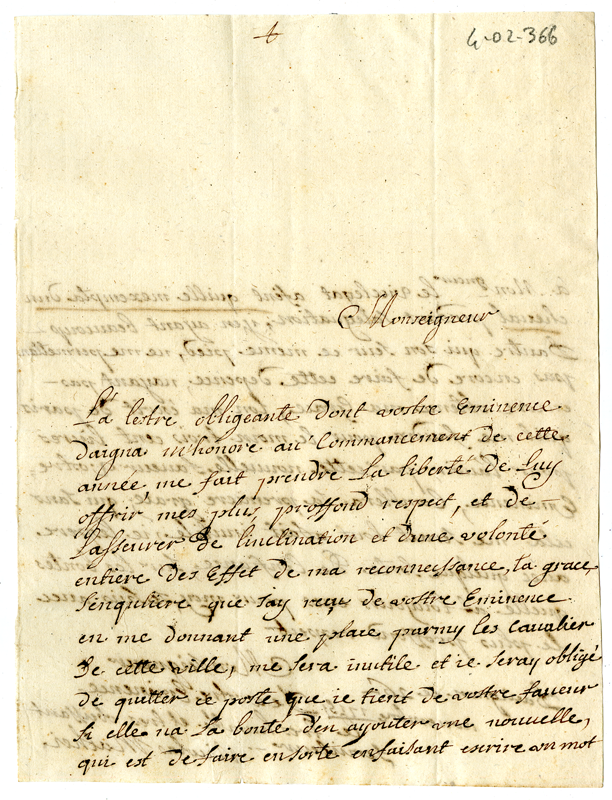 +
4-02-366
Monseigneur
La lestre obligeante dont vostre Eminence
daigna m'honore au Commancement de cette
année me fait prendre la liberté de luy
offrir mes plus proffond respect, et de
lasseurer de linclination et dune volonté
entiere des Effet de ma reconnessance, la grace
senguliere que jay reçu de vostre Eminence
en me donnant une place parmy les cavalier
de cette ville, me sera inutile et ie seray obligé
de quitter ce poste que ie tient de vostre faveur
si elle na la bonté d'en ajouter une nouvelle,
qui est de faire ensorte enfaisant escrire un mot